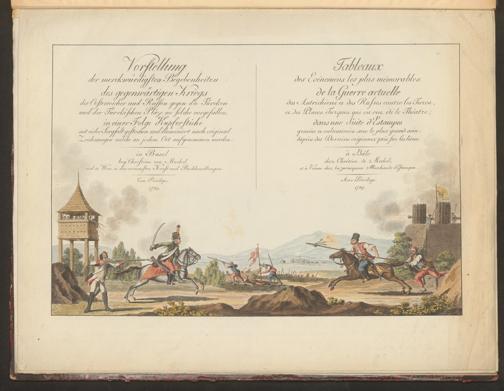 Vorstellung
der merkwürdigsten Begebenheiten
des gegenwärtigen Kriegs
der Österreicher und Russen gegen die Türcken
und der Türckischen Pläze, wo solche vorgefallen,
in einer Folge Kupferstiche
mit vieler Sorgfalt gestochen und illuminiert nach original
Zeichnungen welche an jedem Ort aufgenommen worden.
in Basel
bey Christian von Mechel
und in Wien, u. den vornehmsten Kunst und Buchhandlungen.
Cum Privilegio
1789.
Tableaux
des Evénemens les plus mémorables
de la Guerre actuelle
des Autrichiens et des Russes contre les Turcs,
et des Places Turques qui en ont été le Théâtre;
dans une Suite d'Estampes
gravées et enluminées avec le plus grand soin
d'après des Dessins originaux pris sur les lieux.
à Bâle
chez Chrétien de Mechel
et à Vienne chez les principaux Marchands d'Estampes
Avec Privilege
1789.